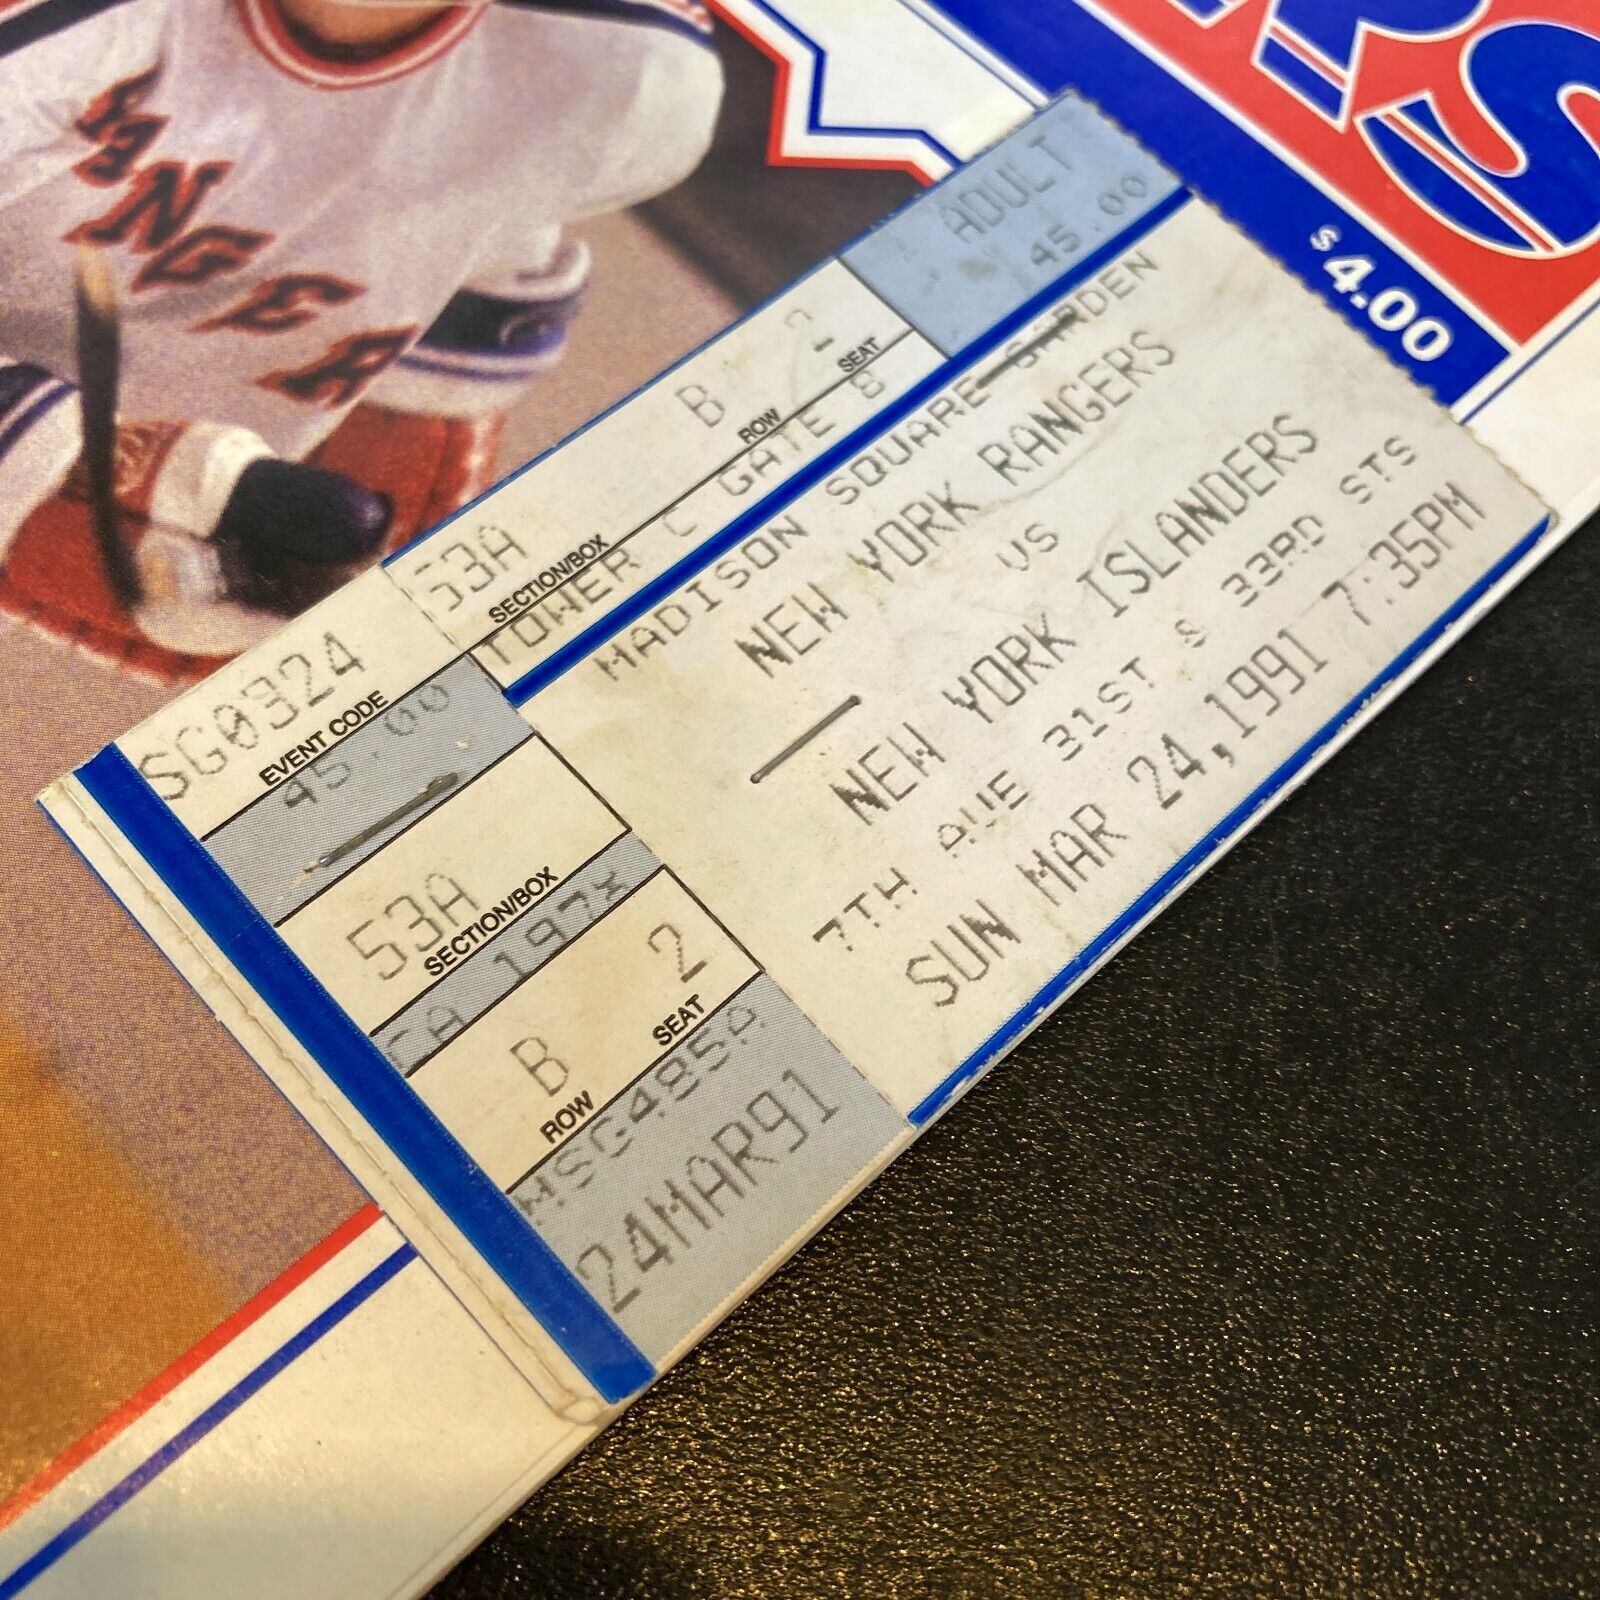 RANGER
ERS
$4.00
ADULT
45.00
53A B 2
SECTION/BOX ROW SEAT
TOWER C GATE 8
MADISON SQUARE GARDEN
NEW YORK RANGERS
VS
NEW YORK ISLANDERS
7TH AVE 31ST & 33RD STS
SUN MAR 24,1991 7:35PM
SG0324
EVENT CODE
45.00
53A
SECTION/BOX
CA 197X
B 2
ROW SEAT
MSG485A
24MAR91